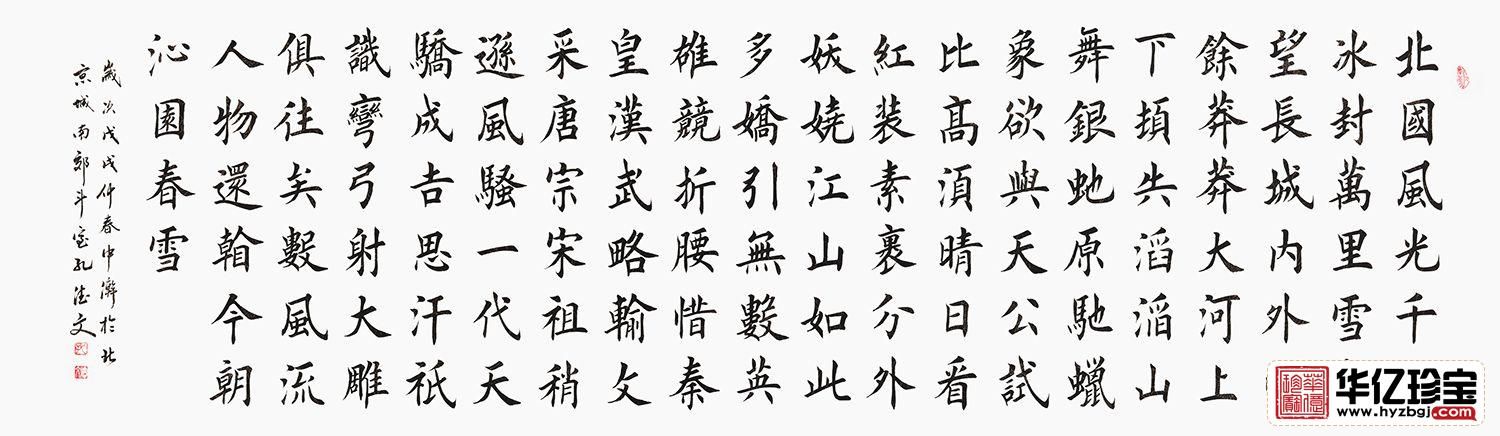 北國風光千
冰封萬里雪
望長城内外
餘莽莽大河上
下頓失滔滔山
舞銀虵原馳蠟
象欲與天公試
比髙須晴日看
紅裝素裹分外
妖嬈江山如此
多嬌引無數英
雄競折腰惜秦
皇漢武略輸文
采唐宗宋祖稍
遜風騷一代天
驕成吉思汗衹
識彎弓射大雕
俱往矣數風流
人物還看今朝
沁園春雪
歲次戊戌仲春中澣於北
京城南郭斗室孔德文
华亿珍宝
www.hyzbgj.com